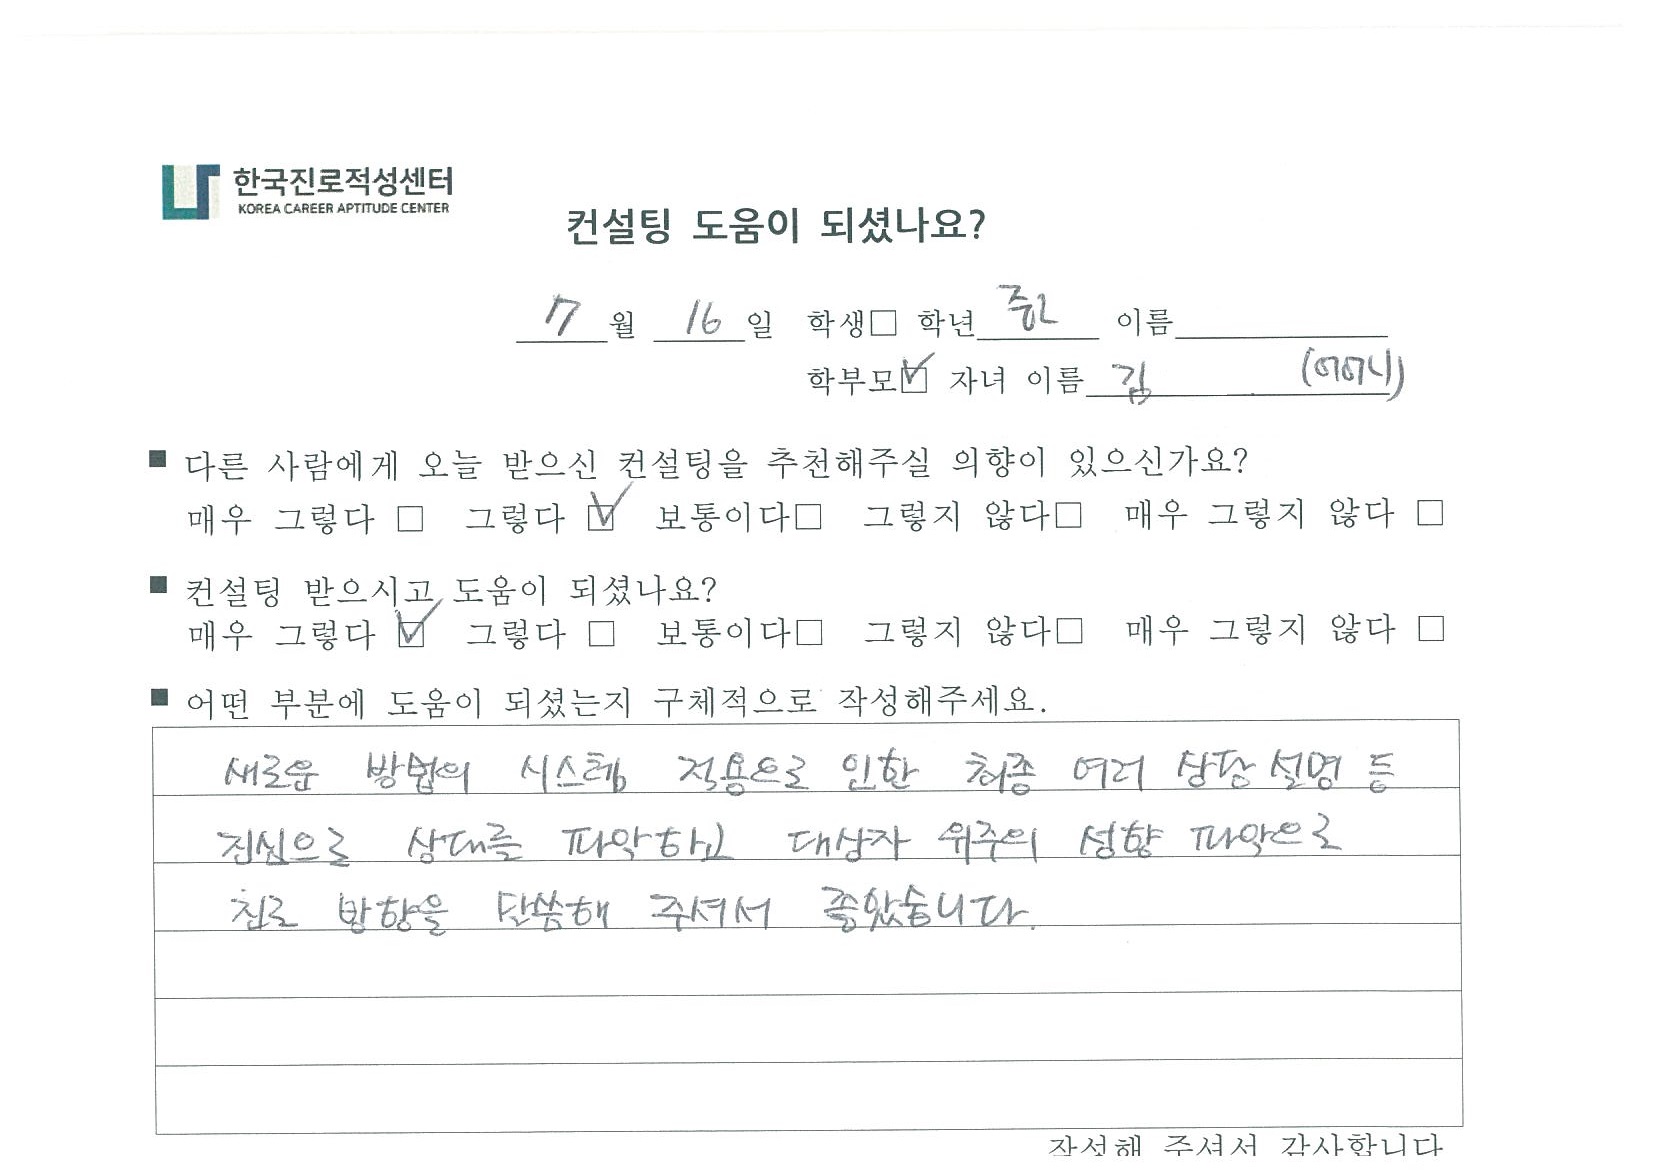 한국진로적성센터
KOREA CAREER APTITUDE CENTER
컨설팅 도움이 되셨나요?
7 월 16 일 학생□ 학년 중2 이름
학부모☑ 자녀 이름 김 (어머니)
■ 다른 사람에게 오늘 받으신 컨설팅을 추천해주실 의향이 있으신가요?
매우 그렇다 □ 그렇다 ☑ 보통이다□ 그렇지 않다□ 매우 그렇지 않다 □
■ 컨설팅 받으시고 도움이 되셨나요?
매우 그렇다 ☑ 그렇다 □ 보통이다□ 그렇지 않다□ 매우 그렇지 않다 □
■ 어떤 부분에 도움이 되셨는지 구체적으로 작성해주세요.
새로운 방법의 시스템 적용으로 인한 최종 여러 상담 설명 등
진심으로 상대를 파악하고 대상자 위주의 성향 파악으로
진로 방향을 말씀해 주셔서 좋았습니다.
작성해 주셔서 감사합니다